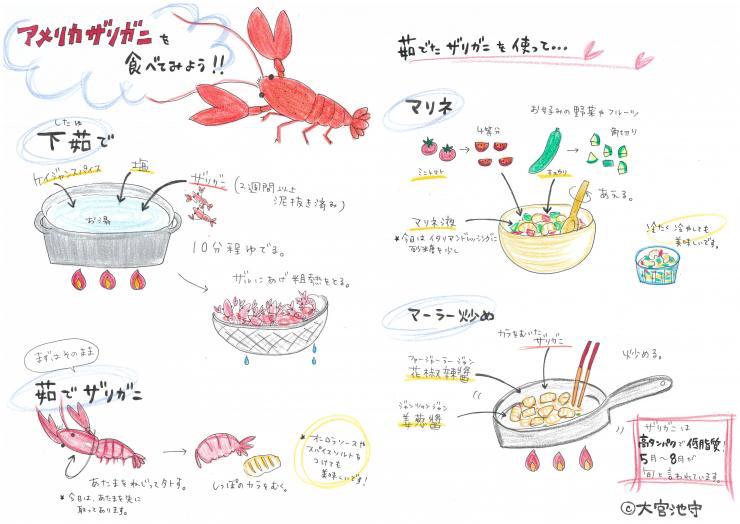 アメリカザリガニを
食べてみよう!!
したゆ
下茹で
ケイジャンスパイス
塩
ザリガニ
(2週間以上
泥抜き済み)
お湯
10分程ゆでる。
ザルにあげ粗熱をとる。
まずはそのまま
茹でザリガニ
あたまをねじってハズす。
*今日は、あたまを先に
取ってあります。
しっぽのカラをむく。
*オーロラソースや
スパイスソルトを
つけても
美味しいです!
茹でたザリガニを使って…
マリネ
お好みの野菜やフルーツ
4等分
角切り
ミニトマト
きゅうり
あえる。
マリネ液
*今日はイタリアンドレッシングに
砂糖を少し
冷たく冷やしても
美味しいです。
マーラー炒め
カラをむいた
ザリガニ
炒める。
ファージャーラージャン
花椒辣醬
ジャンツォンジャン
姜葱醬
ザリガニは
高タンパクで低脂質!
5月~8月が
旬と言われています。
©大宮池守